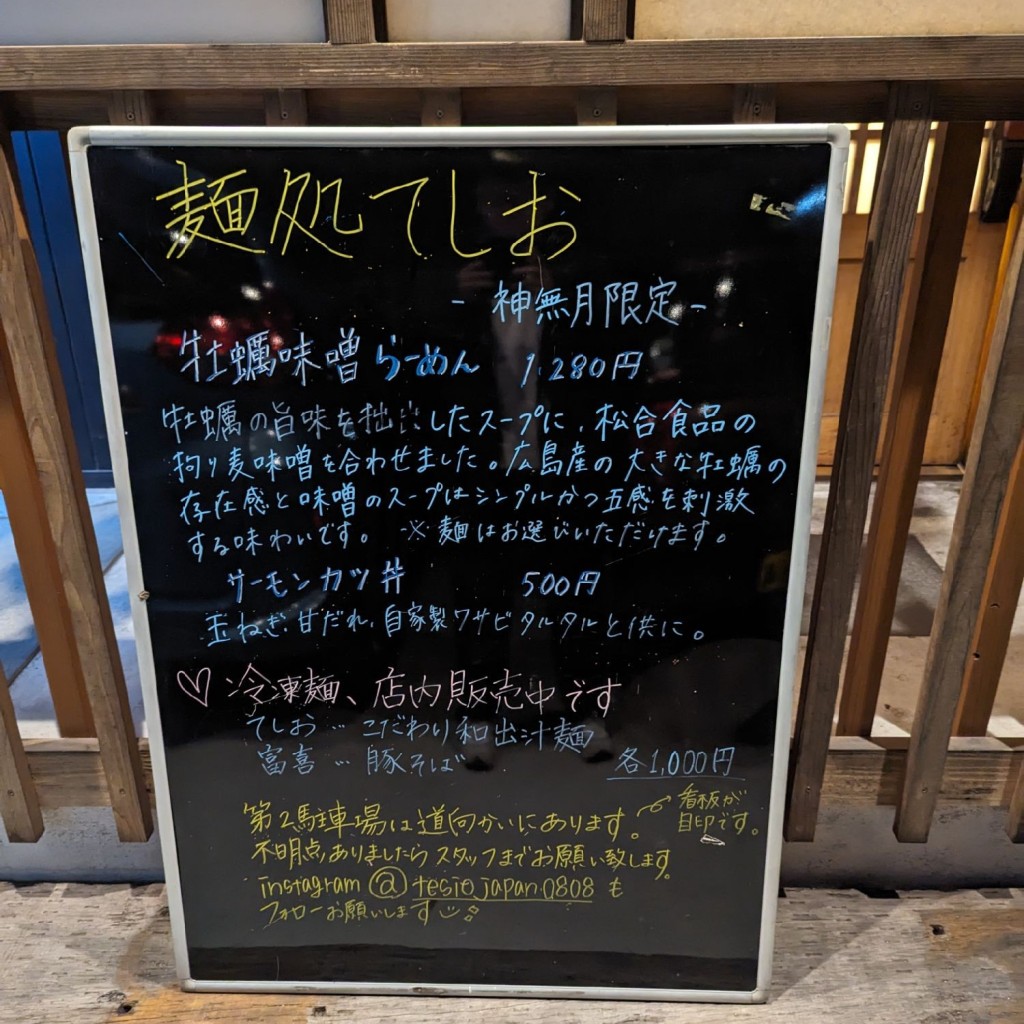 麺処てしお
- 神無月限定 -
牡蠣味噌らーめん 1,280円
牡蠣の旨味を抽出したスープに、松合食品の
拘り麦味噌を合わせました。広島産の大きな牡蠣の
存在感と味噌のスープはシンプルかつ五感を刺激
する味わいです。 ※麺はお選びいただけます。
サーモンカツ丼 500円
玉ねぎ、甘だれ、自家製ワサビタルタルと供に。
♡冷凍麺、店内販売中です
てしお… こだわり和出汁麺
富喜 … 豚そば 各1,000円
第2駐車場は道向かいにあります。 看板が
目印です。
不明点ありましたらスタッフまでお願い致します。
instagram @tesio_japan.0808 も
フォローお願いします